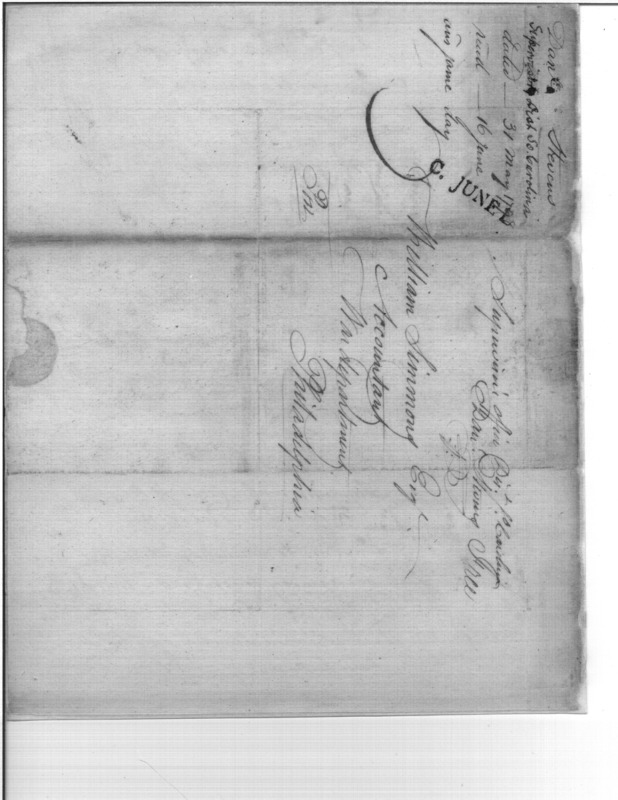 Danl Stevens
Supervisor Dist So. Carolina
dated — 31 May 1798
recd — 16 June
ans same day
C. JUNE
Supervisors
Dist So Carolina
Danl Stevens
Free
William Simmons Esqr
Accountant
War department
Philadelphia